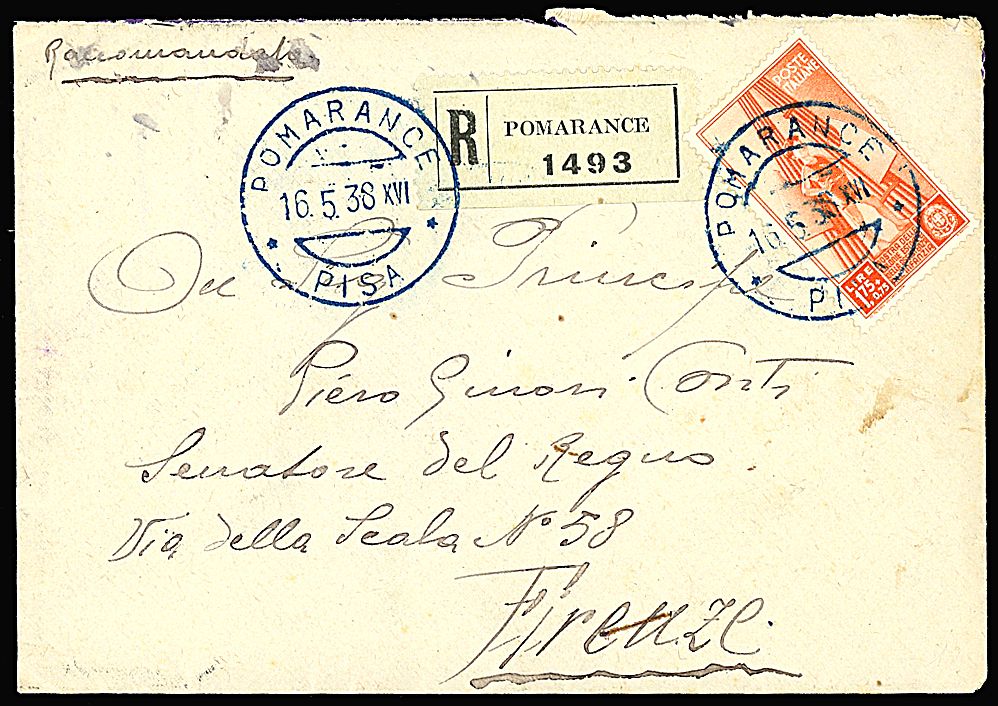 Raccomandata
R POMARANCE
1493
POMARANCE
16.5.38 XVI
PISA
POSTE
ITALIANE
LIRE
1,75+
0,75
POMARANCE
16.5.38 XVI
PI
On Principe
Piero Ginori Conti
Senatore del Regno
Via della Scala No 58
Firenze